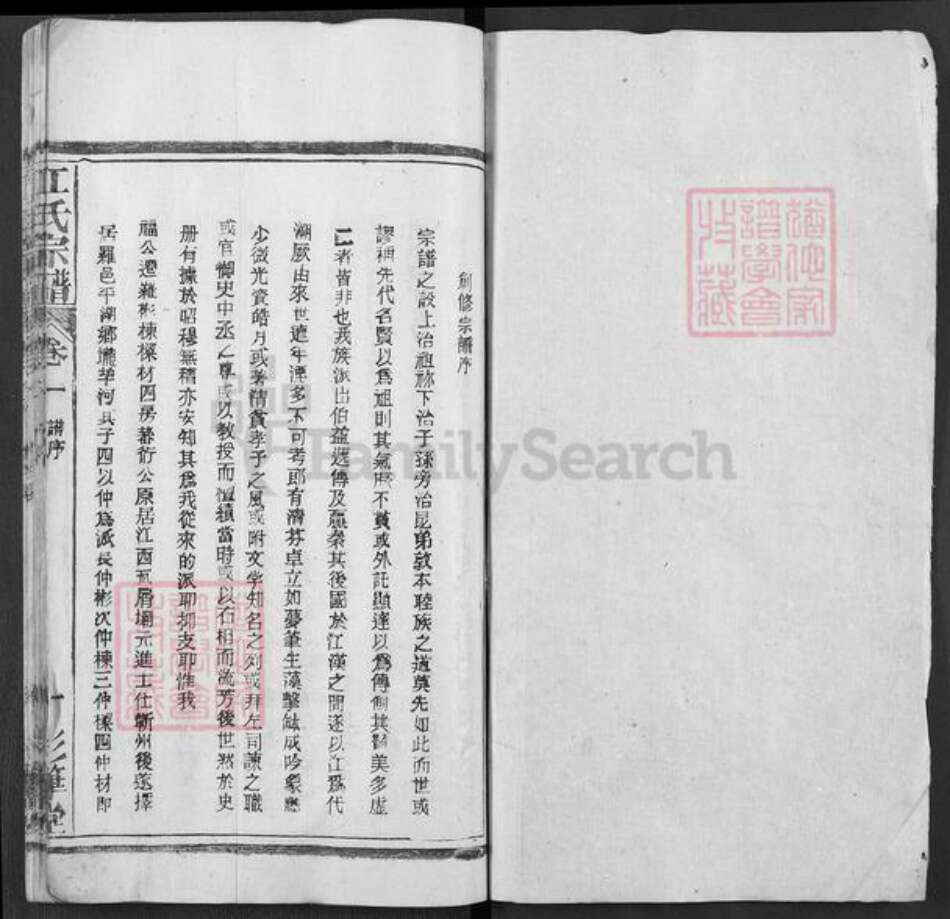 猶他家
譜學會
收藏
創修宗譜序
宗譜之設上治祖祢下治子孫旁治昆弟敦本睦族之道莫先如此而世或
謬祖先代名賢以爲祖則其氣脉不貫或外託顯達以爲傳侈其譽美多虛
二者皆非也我族派出伯益遞傳及嬴秦其後國於江漢之間遂以江爲代
湖厥由來世遠年湮多不可考郎有清芬卓立如夢筆生藻擊缽成吟象應
少微光資皓月或著清貧孝子之風或附文學知名之列或拜左司諫之職
或官御史中丞之尊或以教授而懋績當時或以石相而流芳後世然於史
册有據於昭穆無稽亦安知其爲我從來的派耶抑支耶惟我
福公遷羅彬棟樑材四房蕃衍公原居江西瓦屑壩元進士仕蘄州後遂擇
居羅邑平湖鄉河其子四以仲爲派長仲彬次仲棟三仲樑四仲材即
江氏宗譜
卷一
譜序
一
彩筆堂
FamilySearch